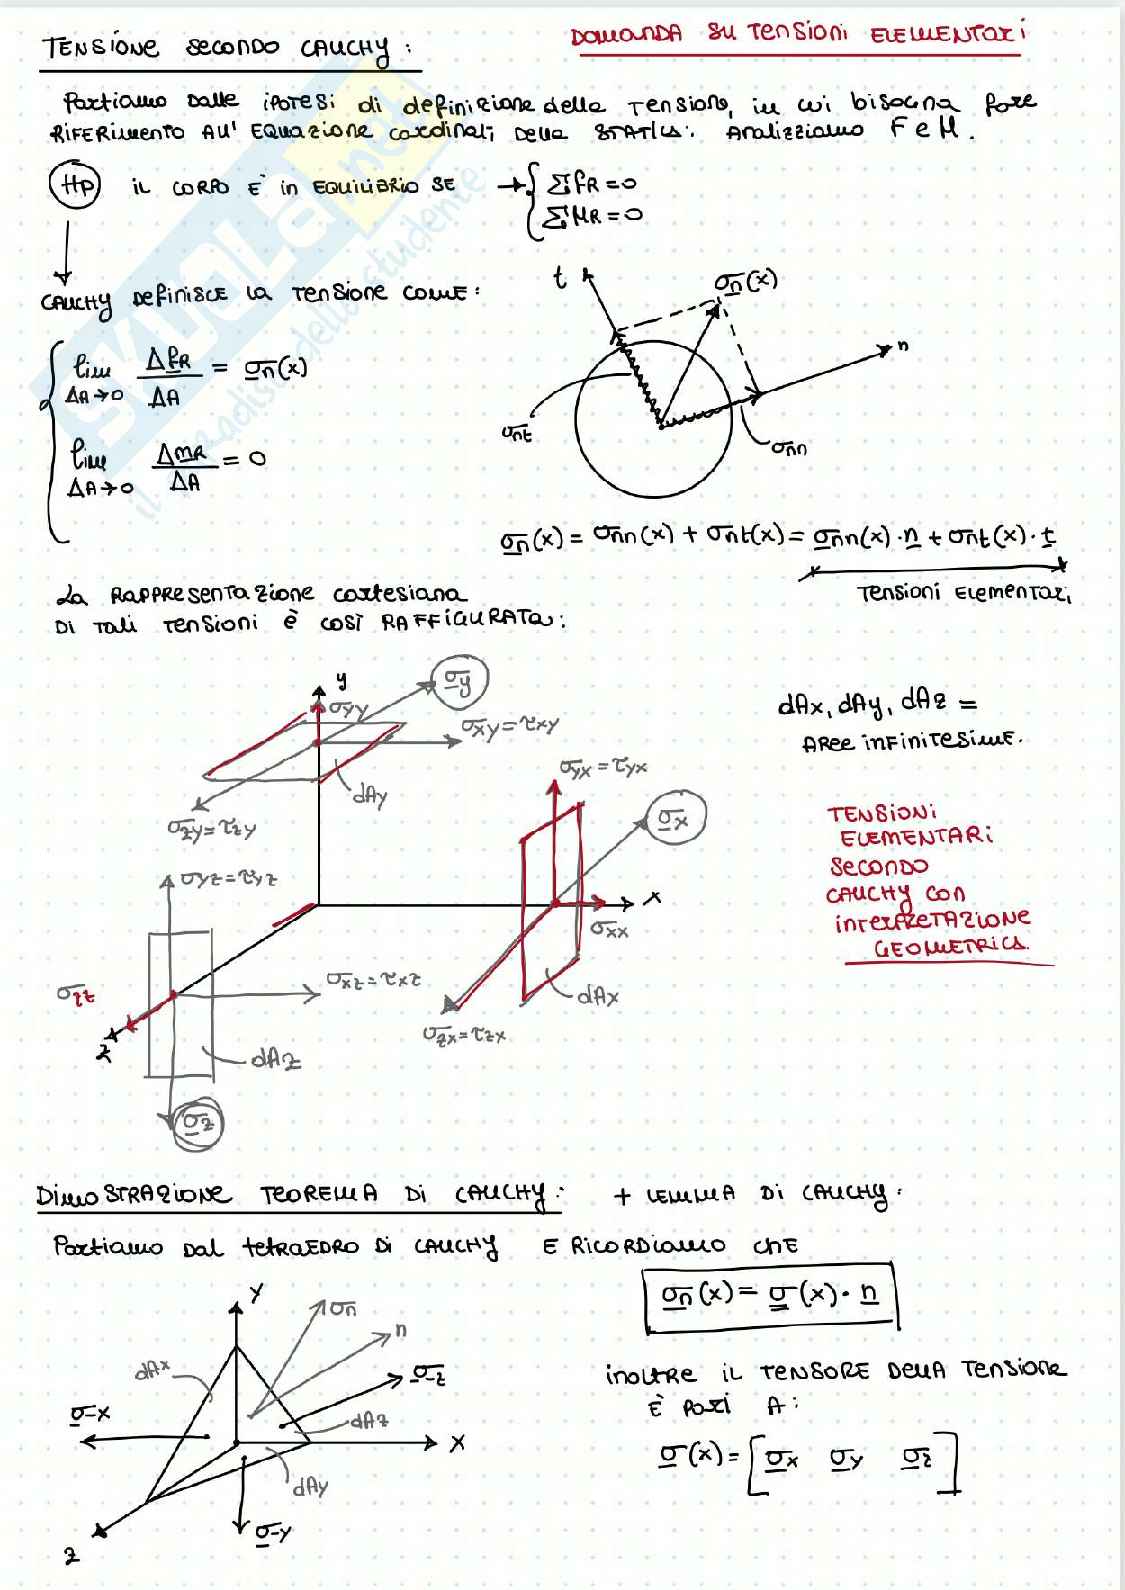 TENSIONE SECONDO CAUCHY:
DOMANDA SU TENSIONI ELEMENTARI
Partiamo dalle ipotesi di definizione della tensione, in cui bisogna fare
riferimento all' equazione cardinali della statica. Analizziamo F e M.
Hp il corpo è in equilibrio se → { ΣfR = 0
ΣMR = 0
Cauchy definisce la tensione come:
lim ΔfR/ΔA = σn(x)
ΔA→0
lim ΔmR/ΔA = 0
ΔA→0
t
σn(x)
n
σnt
σnn
σn(x) = σnn(x) + σnt(x) = σnn(x)·n + σnt(x)·t
Tensioni elementari
La rappresentazione cartesiana
di tali tensioni è così raffigurata:
y
σy
σyy
σxy = τxy
dAy
σzy = τzy
dAx, dAy, dAz =
aree infinitesime.
σyx = τyx
σx
x
σxx
dAx
σzx = τzx
TENSIONI
ELEMENTARI
SECONDO
CAUCHY CON
INTERPRETAZIONE
GEOMETRICA
σyz = τyz
σxz = τxz
σzz
z
dAz
σz
DIMOSTRAZIONE TEOREMA DI CAUCHY: + LEMMA DI CAUCHY:
Partiamo dal tetraedro di Cauchy e ricordiamo che
σn(x) = σ(x)· n
y
σn
n
dAx
σ-z
σ-x
dAz
x
dAy
σ-y
z
inoltre il tensore della tensione
è pari a:
σ(x) = [σx σy σz]
SKUOLA.net
il paradiso dello studente